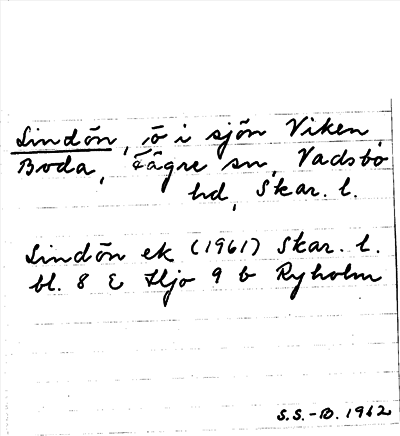 Lindön, ö i sjön Viken,
Boda, Fägre sn, Vadsbo
hd, Skar. l.
Lindön ek (1961) Skar. l.
bl. 8 E Hjo 9 b Ryholm
S.S.-B. 1962